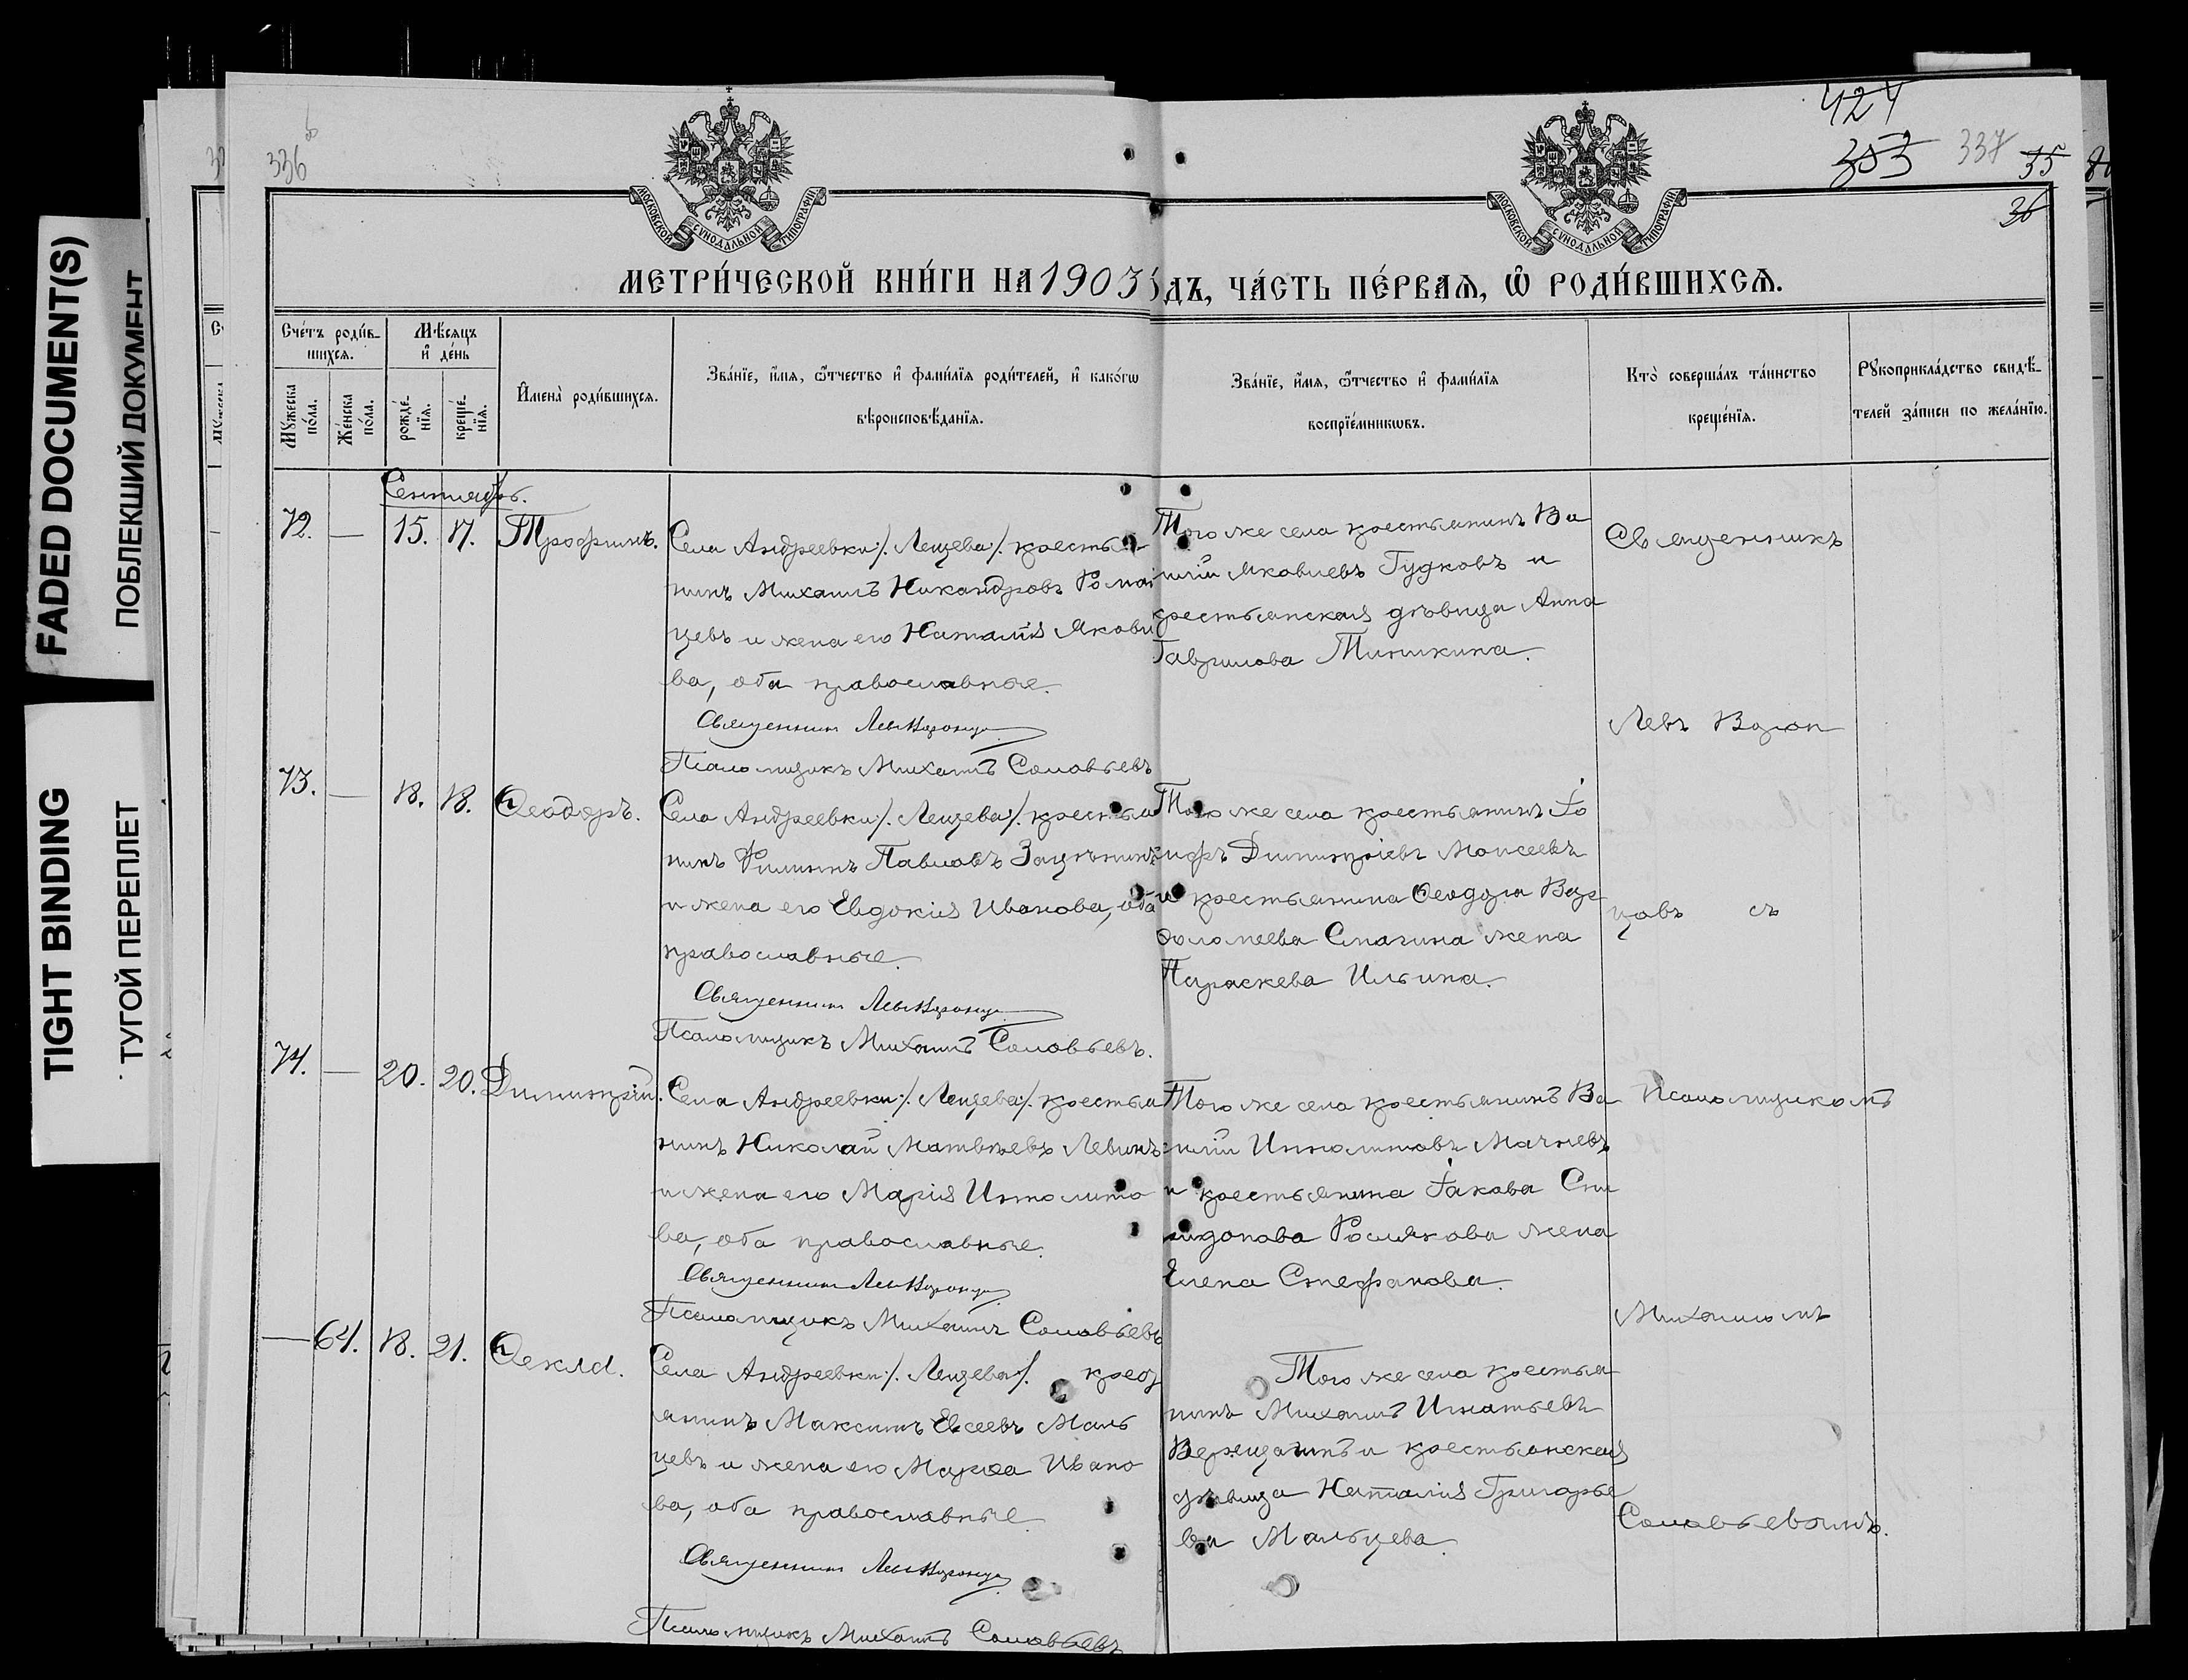 FADED DOCUMENT(S)
ПОБЛЕКШИЙ ДОКУМЕНТ
TIGHT BINDING
ТУГОЙ ПЕРЕПЛЕТ
336 об
424
353 337 35
36
МОСКОВСКОЙ СѴНОДАЛЬНОЙ ТИПОГРАФІИ
МОСКОВСКОЙ СѴНОДАЛЬНОЙ ТИПОГРАФІИ
МЕТРИ́ЧЕСКОЙ КНИ́ГИ НА 1903 ДЪ, ЧА́СТЬ ПЕ́РВАѦ, Ѿ РОДИ́ВШИХСѦ.
Сче́тъ роди́в-
шихсѧ.
Мѣ́сѧцъ
и҆ де́нь
Мꙋ́жеска
по́ла.
Же́нска
по́ла.
рожде́-
нїѧ.
креще́-
нїѧ.
И҆мена̀ роди́вшихсѧ.
Зва́нїе, и҆́мѧ, ѻ҆́тчество и҆ фами́лїѧ роди́телей, и҆ како́гѡ
вѣроисповѣ́данїѧ.
Зва́нїе, и҆́мѧ, ѻ҆́тчество и҆ фами́лїѧ
воспрїе́мникѡвъ.
Кто̀ соверша́лъ та́инство
креще́нїѧ.
Рꙋкоприкла́дство свидѣ́-
телей за́писи по жела́нїю.
Сентябрь.
72. — 15. 17. Трофимъ.
Села Андреевки /. Лещева /. крестья-
нинъ Михаилъ Никандровъ Роман
цевъ и жена его Наталія Яковл
ва, оба православные.
Священникъ Левъ Воронцо
Псаломщикъ Михаилъ Соловьевъ
Того же села крестьянинъ Ва
илій Яковлевъ Гудковъ и
крестьянская дѣвица Анна
Гаврилова Тишкина.
73. — 18. 18. Ѳеодоръ.
Села Андреевки /. Лещева /. крестья
нинъ Филиппъ Павловъ Зацѣпинъ
и жена его Евдокія Иванова, оба
православные.
Священникъ Левъ Воронцо
Псаломщикъ Михаилъ Соловьевъ.
Того же села крестьянинъ Іо
ифъ Димитріевъ Моисеевъ
и крестьянина Ѳеодора Вар
ѳоломеева Смагина жена
Параскева Ильина.
74. — 20. 20. Димитрій.
Села Андреевки /. Лещева /. крестья
нинъ Николай Матвѣевъ Левинъ
и жена его Марія Ипполито
ва, оба православные.
Священникъ Левъ Воронцо
Псаломщикъ Михаилъ Соловьевъ
Того же села крестьянинъ Ва
илій Ипполитовъ Мачневъ
и крестьянина Іакова Спи
ридонова Рослякова жена
Елена Стефанова.
— 64. 18. 21. Ѳекла.
Села Андреевки /. Лещева /. крест
янинъ Максимъ Евсеевъ Маль
цевъ и жена его Марѳа Ивано
ва, оба православные.
Священникъ Левъ Воронцо
Псаломщикъ Михаилъ Соловьевъ
Того же села крестья
нинъ Михаилъ Игнатьевъ
и крестьянская
дѣвица Наталія Григорье
ва Мальцева.
Священникъ
Левъ Ворон
цовъ съ
Псаломщикомъ
Михаиломъ
Соловьевымъ.